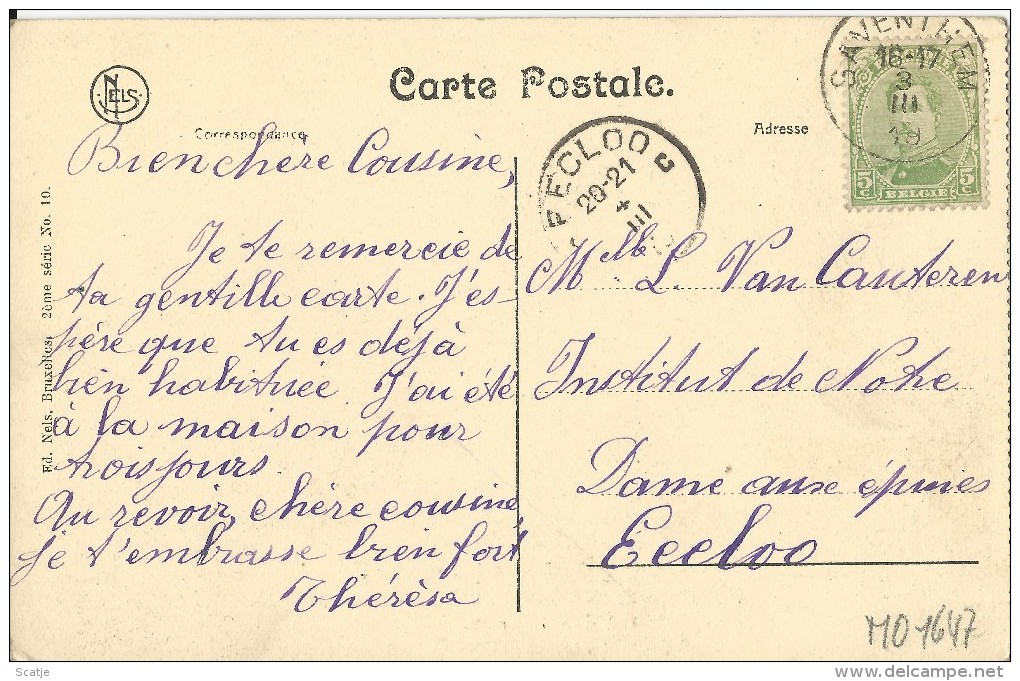 NELS
Carte Postale.
Correspondance
Adresse
SAVENTHEM
16-17
3
III
19
5c BELGIE 5c
EECLOO
20-21
4
III
Bien chère Cousine,
Je te remercie de
ta gentille carte. J'es-
père que tu es déjà
bien habituée. J'ai été
à la maison pour
trois jours.
Au revoir, chère cousine,
je t'embrasse bien fort
Thérèsa
Melle L. Van Cauteren
Institut de Notre
Dame aux épines
Eecloo
Ed. Nels, Bruxelles, 2ème série No. 10.
MO1647
Scatje
www.delcampe.net